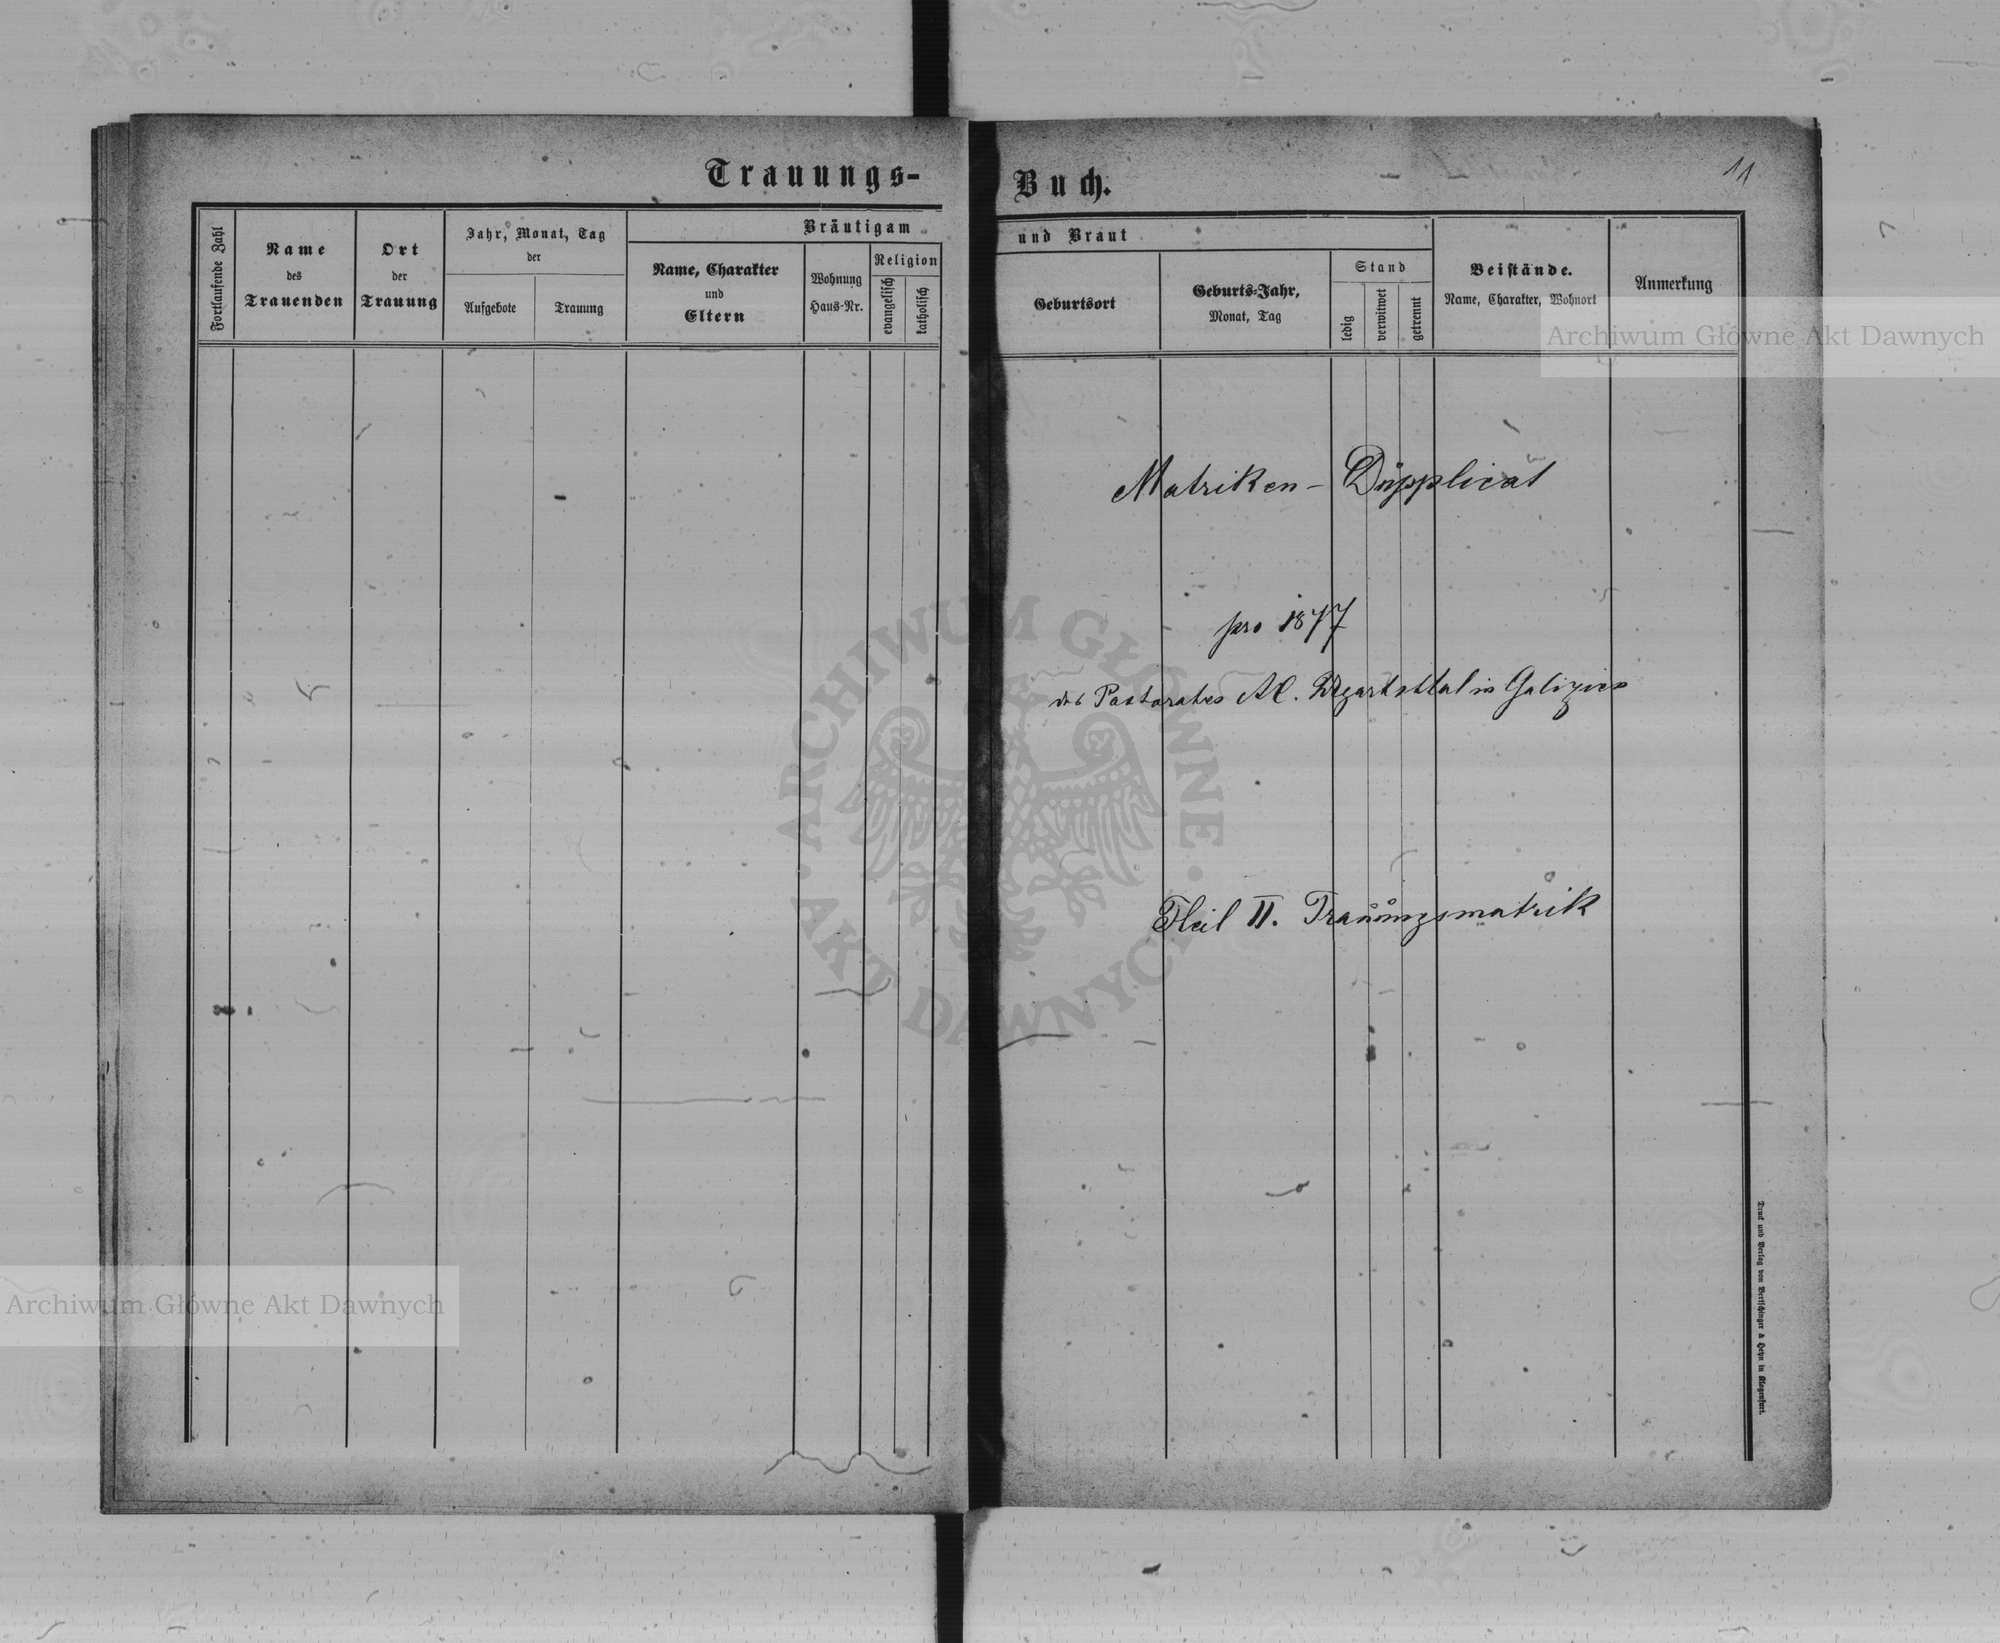 Trauungs-Buch.
11
Fortlaufende Zahl
Name
des
Trauenden
Ort
der
Trauung
Jahr, Monat, Tag
der
Aufgebote
Trauung
Bräutigam und Braut
Name, Charakter
und
Eltern
Wohnung
Haus-Nr.
Religion
evangelisch
katholisch
Geburtsort
Geburts-Jahr,
Monat, Tag
Stand
ledig
verwitwet
getrennt
Beistände.
Name, Charakter, Wohnort
Anmerkung
Archiwum Główne Akt Dawnych
Matriken - Duplicat
pro 1877
des Pastorates AC. in Galizien
Theil II. Trauungsmatrik
ARCHIWUM GŁÓWNE
AKT DAWNYCH
Archiwum Główne Akt Dawnych
Druck und Verlag von Bertschinger & Heyn in Klagenfurt.